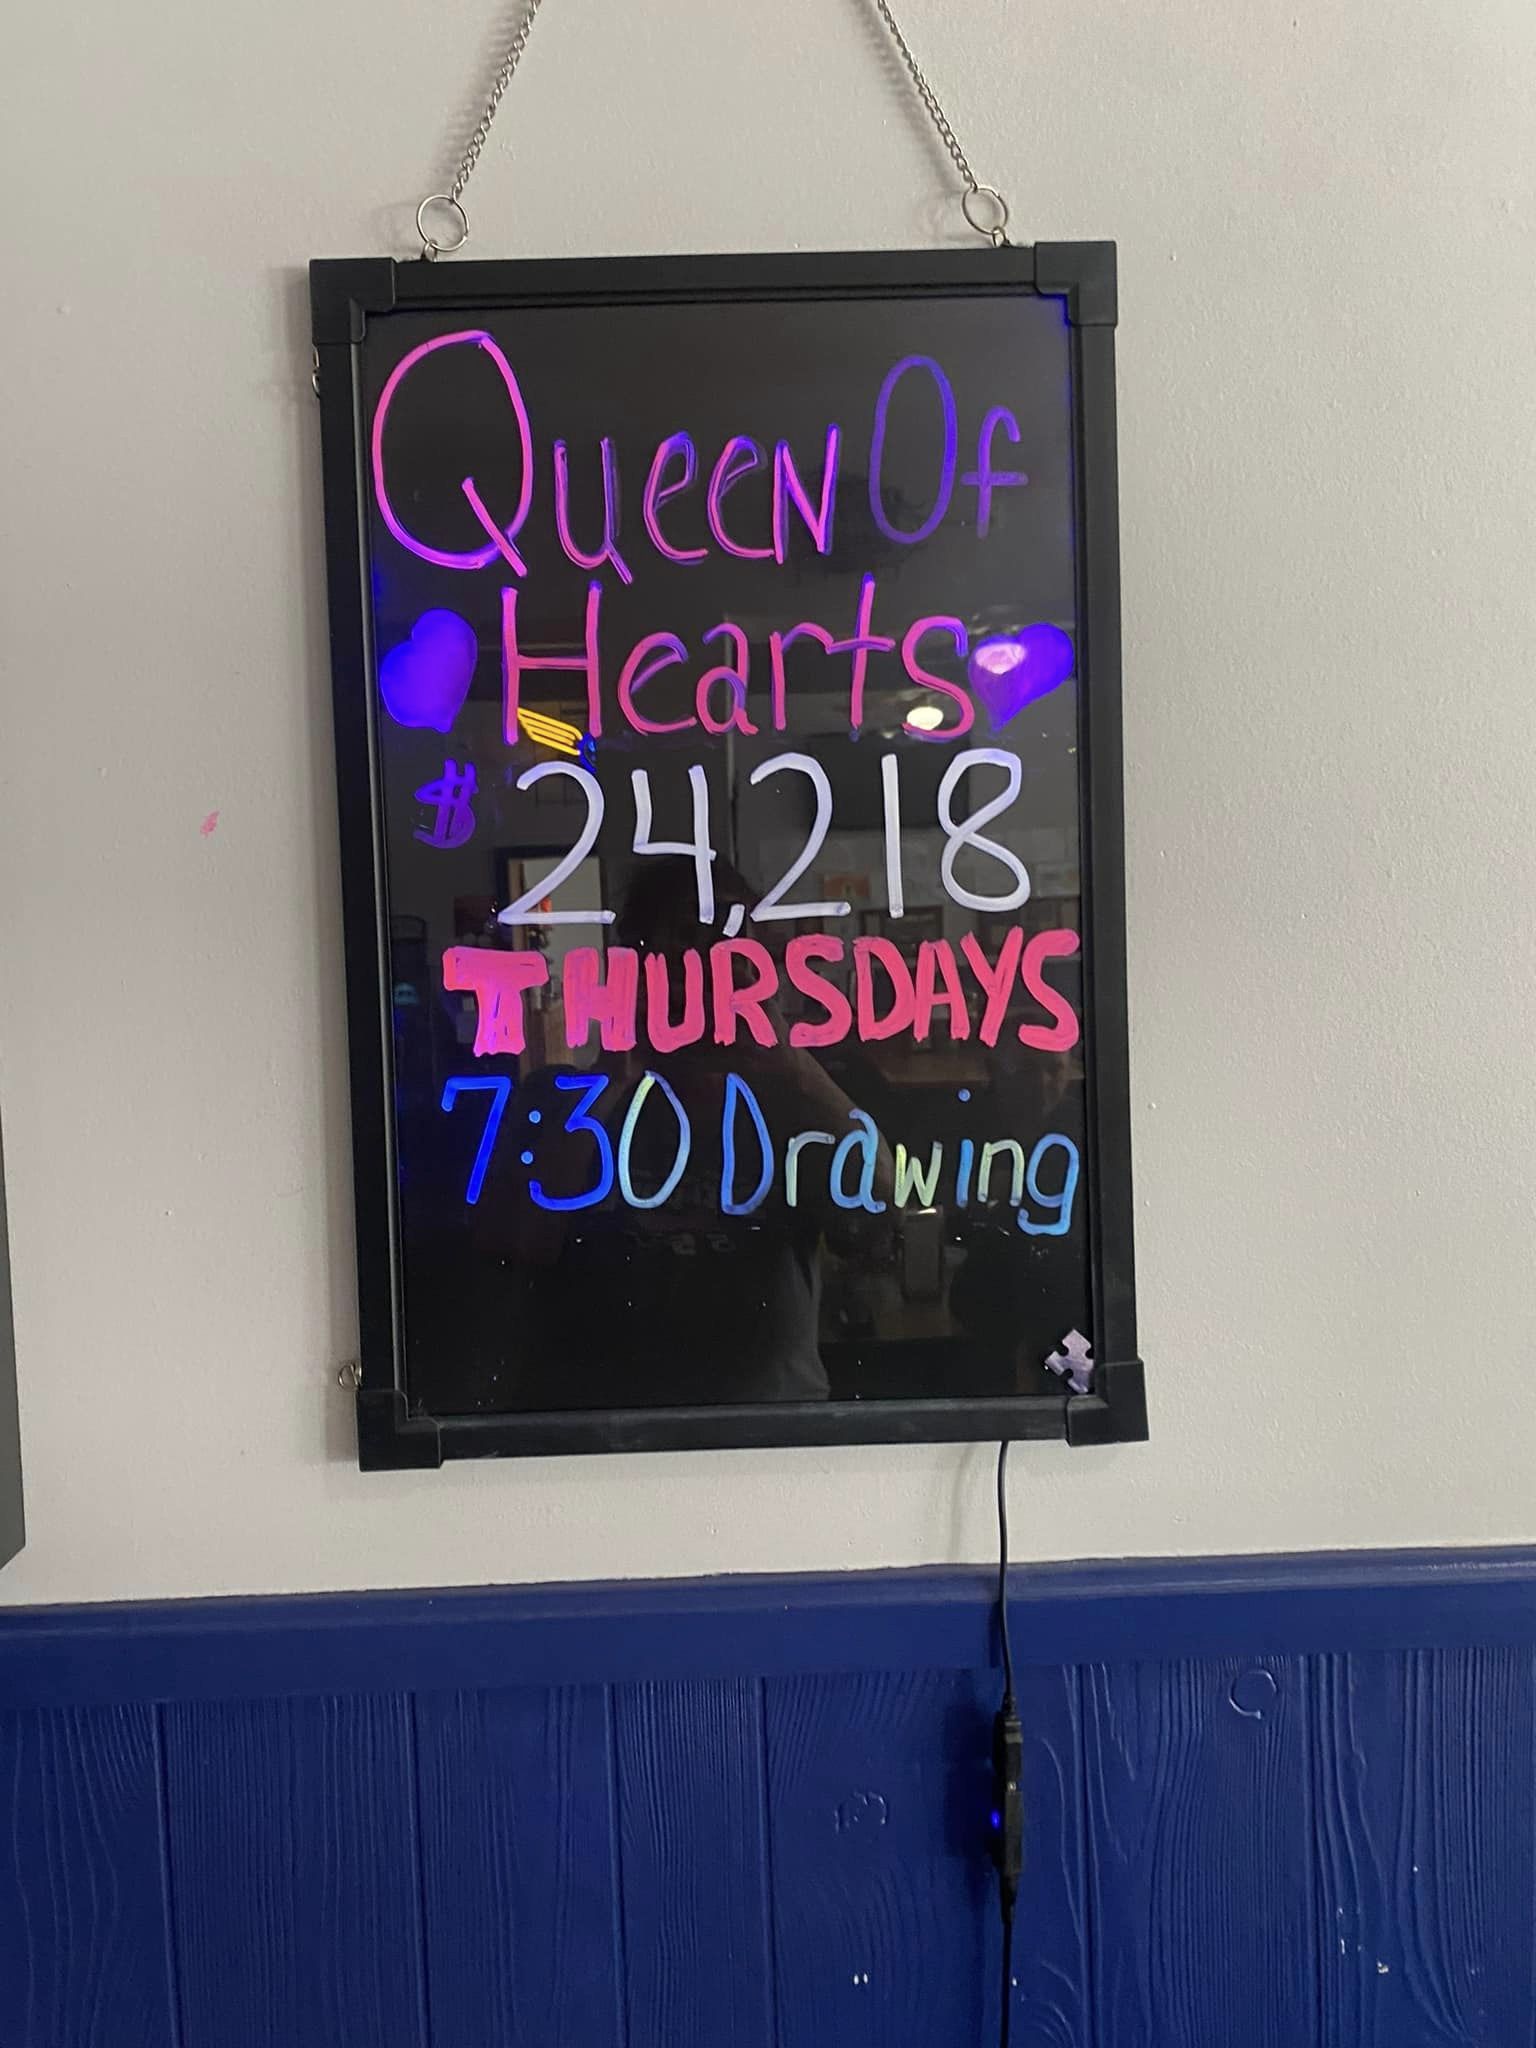 Queen Of
Hearts
$24,218
THURSDAYS
7:30 Drawing